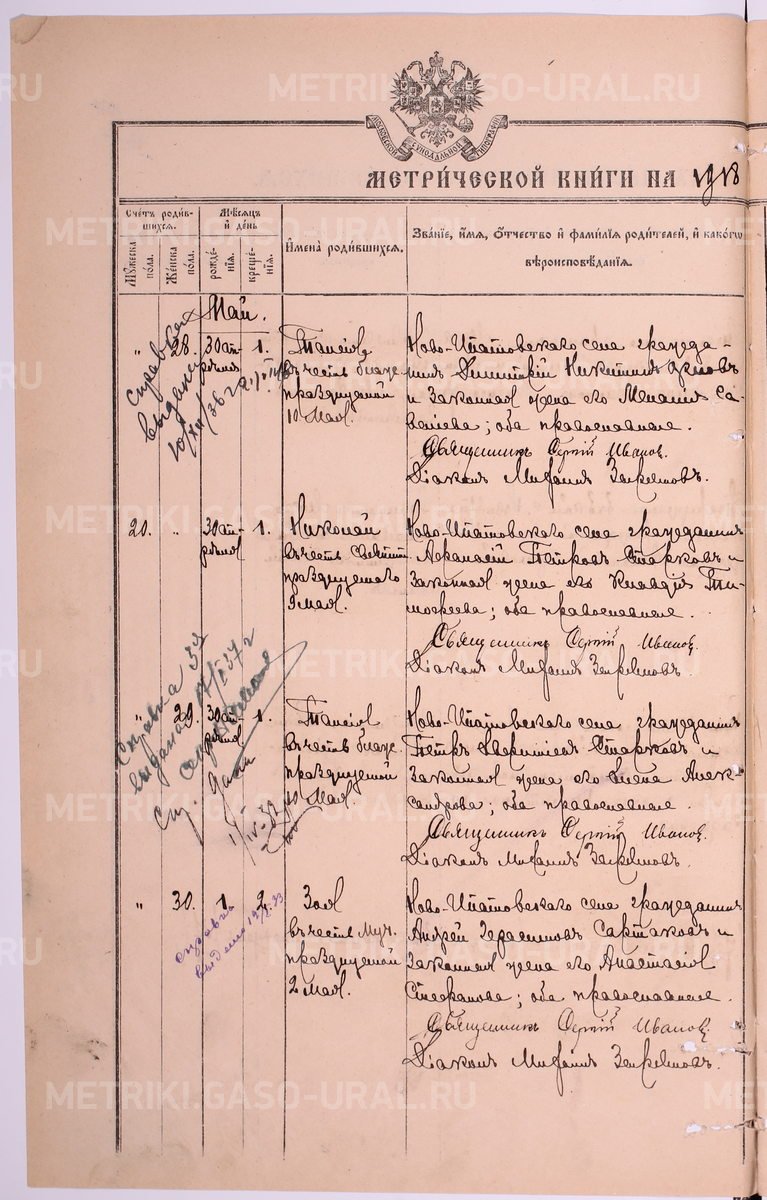 METRIKI.GASO-URAL.RU
МОСКОВСКОЙ СУНОДАЛЬНОЙ ТИПОГРАФІИ
МЕТРИЧЕСКОЙ КНИГИ НА 1918
Счетъ родившихся.
Мѣсяцъ и день
Имена родившихся.
Званіе, имя, отчество и фамилія родителей, и какого вѣроисповѣданія.
Мужеска пола.
Женска пола.
рожденія.
крещенія.
Май.
„ 28. 30 апрѣля 1.
Таисія
въ честь блаж.
празднуемой
10 Мая.
Ново-Ипатовскаго села гражда-
нинъ Димитрій Никитинъ
и законная жена его Меланія Са-
вельева; оба православные.
Священникъ Сергій Иванов.
Діаконъ Михаилъ
Справка выдана
10/XII 36 г.
20. „ 30 апрѣля 1.
Николай
въ честь святит.
празднуемаго
9 мая.
Ново-Ипатовскаго села гражданинъ
Афанасій Петровъ Старковъ и
законная жена его Клавдія Ти-
мофеева; оба православные.
Священникъ Сергій Иванов.
Діаконъ Михаилъ
Справка
выдана 37 г
„ 29. 30 апрѣля 1.
Таисія
въ честь блаж.
празднуемой
10 Мая.
Ново-Ипатовскаго села гражданинъ
Петръ Старковъ и
законная жена его Елена Алек-
сандрова; оба православные.
Священникъ Сергій Иванов.
Діаконъ Михаилъ
„ 30. 1. 2.
Зоя
въ честь муч.
празднуемой
2 мая.
Ново-Ипатовскаго села гражданинъ
Андрей Герасимовъ Сартаковъ и
законная жена его Анастасія
Стефанова; оба православные.
Священникъ Сергій Иванов.
Діаконъ Михаилъ
справка
выдана